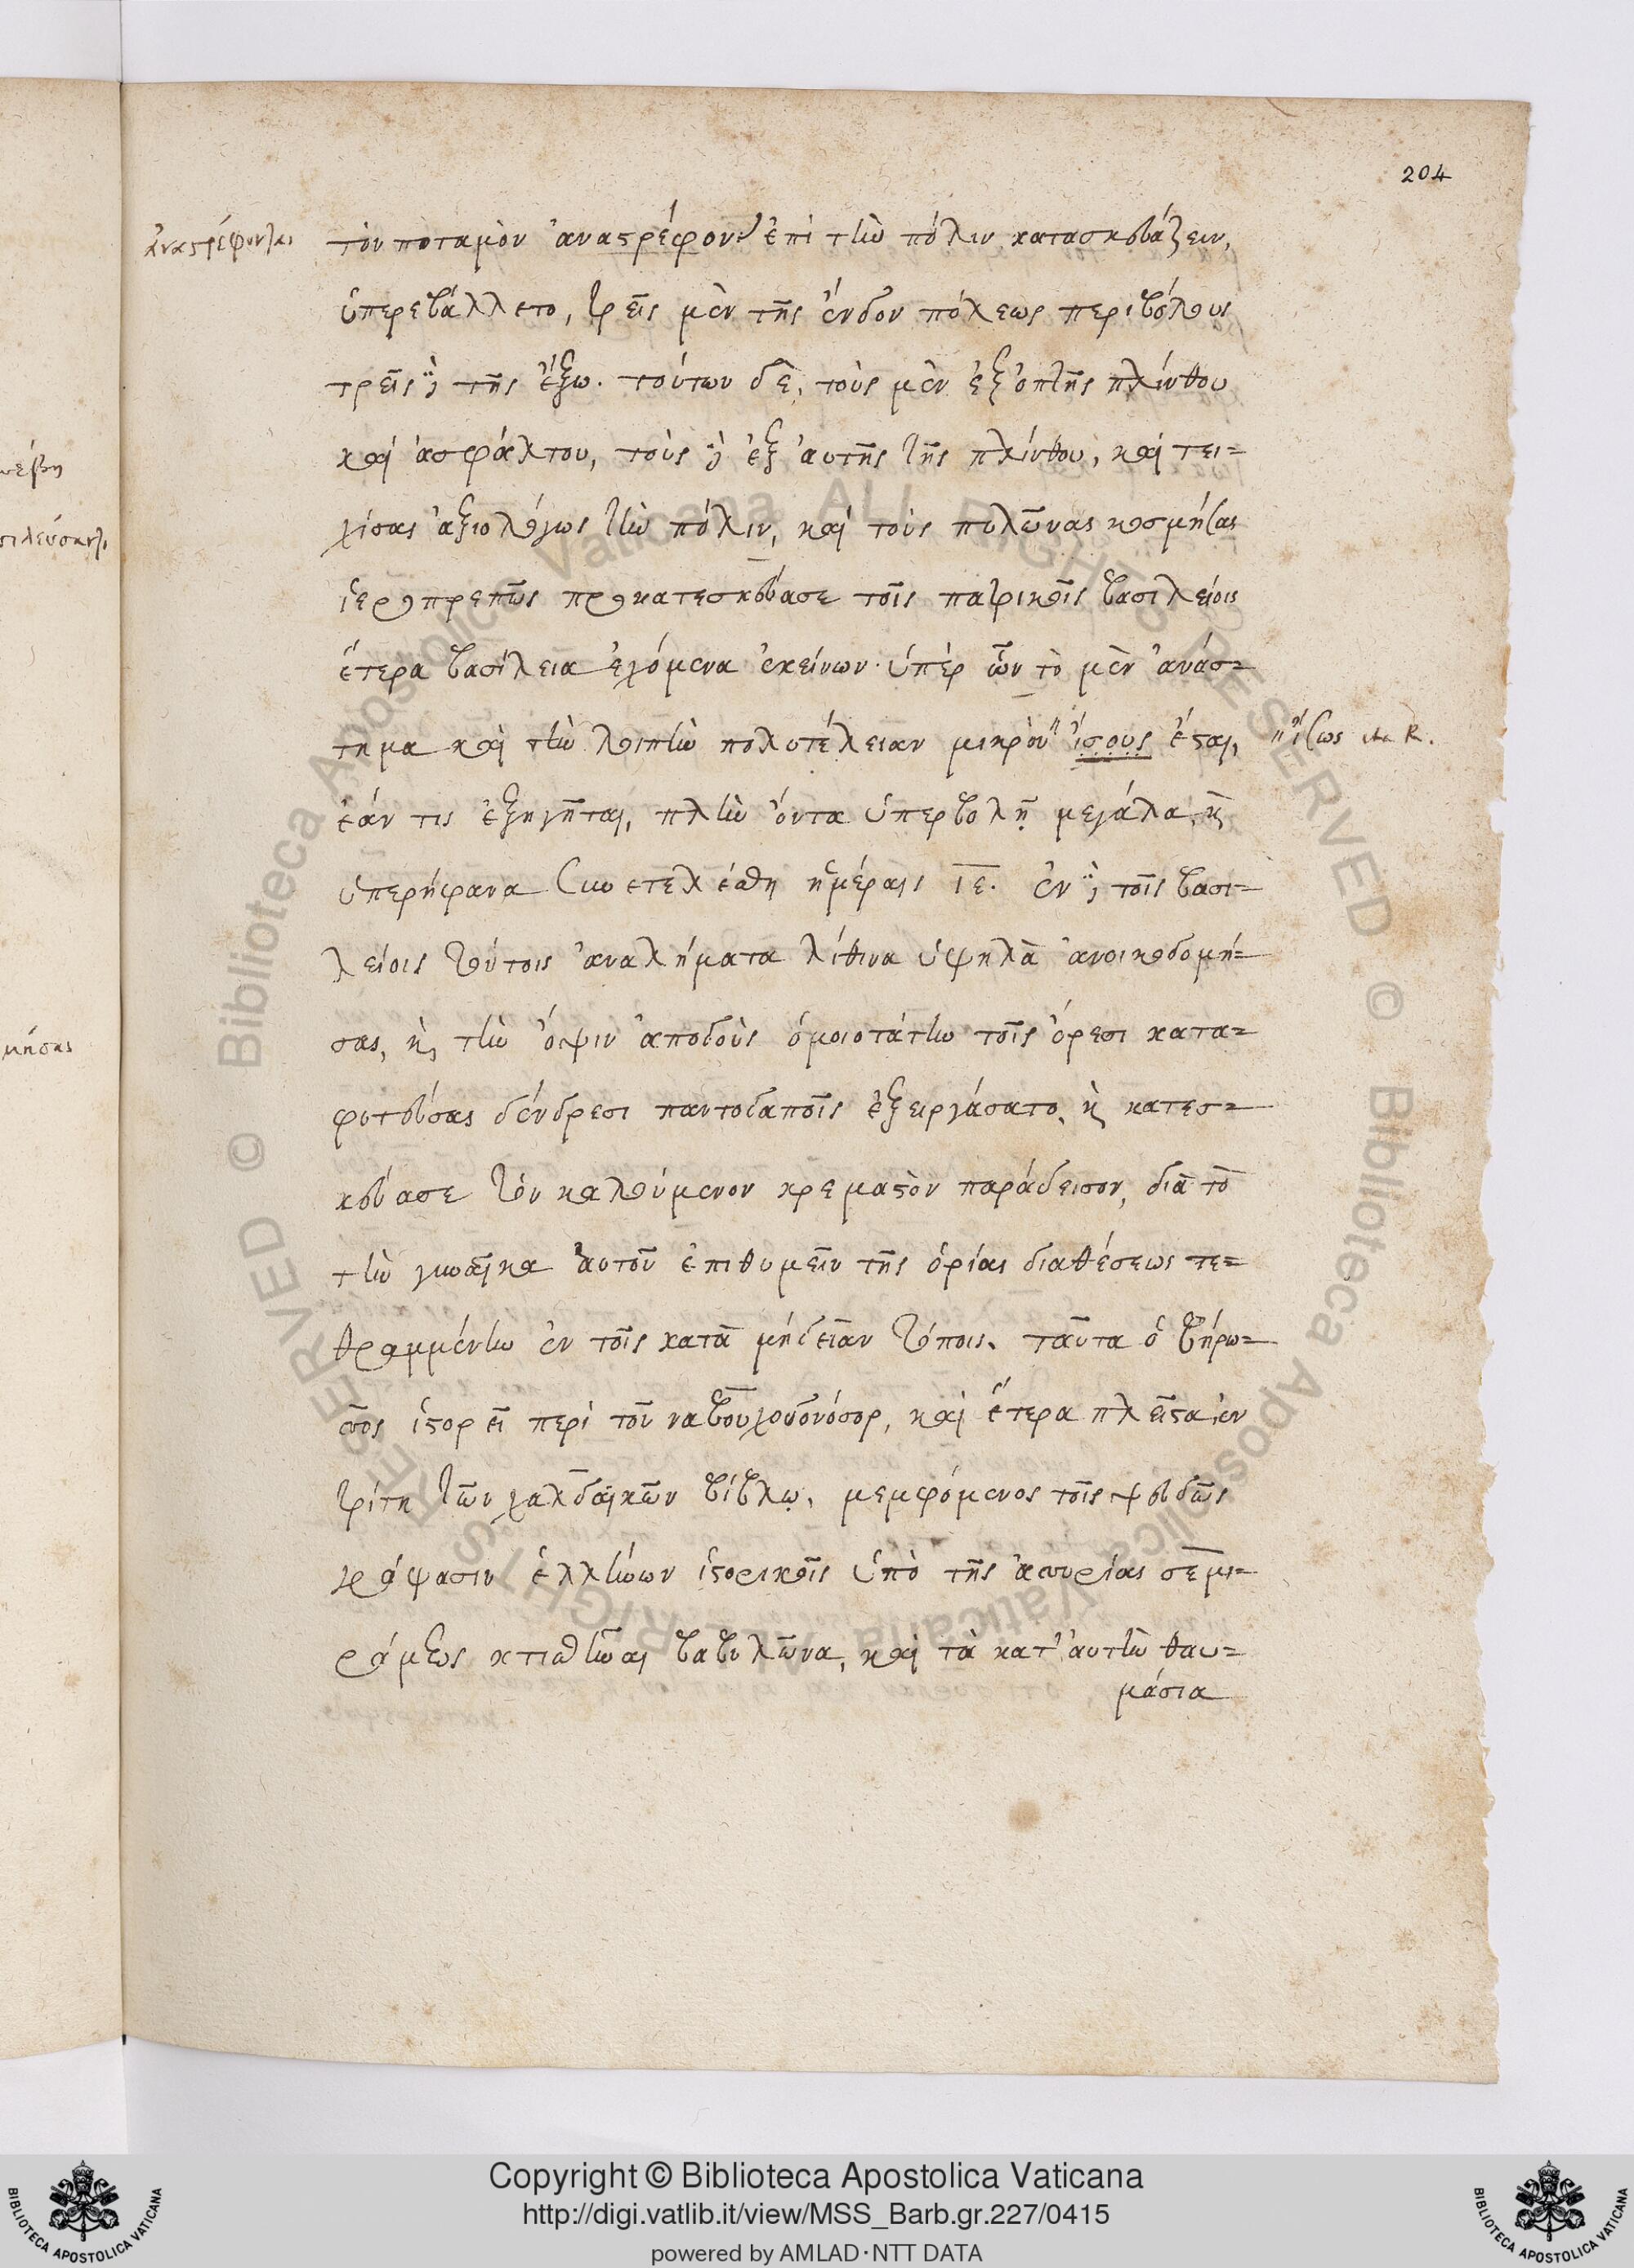 204
ἀναστρέφοντας τὸν ποταμὸν ἀναστρέφοντ ἐπὶ τὴν πόλιν κατασκευάζειν,
ὑπερεβάλλετο, τρεῖς μὲν τῆς ἔνδον πόλεως περιβόλους
τρεῖς δὲ τῆς ἔξω. τούτων δὲ, τοὺς μὲν ἐξ ὀπτῆς πλίνθου
καὶ ἀσφάλτου, τοὺς δὲ ἐξ αὐτῆς τῆς πλίνθου, καὶ τει=
χίσας ἀξιολόγως τὴν πόλιν, καὶ τοὺς πυλῶνας κοσμήσας
ἱεροπρεπῶς προκατεσκεύασε τοῖς πατρικοῖς βασιλείοις
ἕτερα βασίλεια ἐχόμενα ἐκείνων· ὑπὲρ ὧν τὸ μὲν ἀνάσ=
τημα καὶ τὴν λοιπὴν πολυτέλειαν μικρὸν ἴσους ἔσται, ἴσως ita R.
ἐάν τις ἐξηγῆται, πλὴν ὄντα ὑπερβολῇ μεγάλα, καὶ
ὑπερήφανα συνετελέσθη ἡμέραις ιε. ἐν δὲ τοῖς βασι=
λείοις τούτοις ἀναλήματα λίθινα ὑψηλὰ ἀνοικοδομή=
σας, καὶ τὴν ὄψιν ἀποδοὺς ὁμοιοτάτην τοῖς ὄρεσι κατα=
φυτεύσας δένδρεσι παντοδαποῖς ἐξειργάσατο, καὶ κατεσ=
κεύασε τὸν καλούμενον κρεμαστὸν παράδεισον, διὰ τὸ
τὴν γυναῖκα αὐτοῦ ἐπιθυμεῖν τῆς ὁρίας διαθέσεως τε=
θραμμένην ἐν τοῖς κατὰ μήδειαν τόποις. ταῦτα ὁ βήρω=
σσος ἱστορεῖ περὶ τοῦ ναβουχοδονόσορ, καὶ ἕτερα πλεῖστα ἐν
τρίτῃ τῶν χαλδαϊκῶν βίβλῳ, μεμφόμενος τοῖς ψευδῶς
γράψασιν ἑλλήνων ἱστορικοῖς ὑπὸ τῆς ἀσσυρίας σεμι=
ράμεως κτισθῆναι βαβυλῶνα, καὶ τὰ κατ' αὐτὴν θαυ=
μάσια
σιλεύσαντ
μήσας
© Biblioteca Apostolica Vaticana ALL RIGHTS RESERVED © Biblioteca Apostolica Vaticana ALL RIGHTS RESERVED
Copyright © Biblioteca Apostolica Vaticana
http://digi.vatlib.it/view/MSS_Barb.gr.227/0415
powered by AMLAD·NTT DATA
BIBLIOTECA APOSTOLICA VATICANA
BIBLIOTECA APOSTOLICA VATICANA